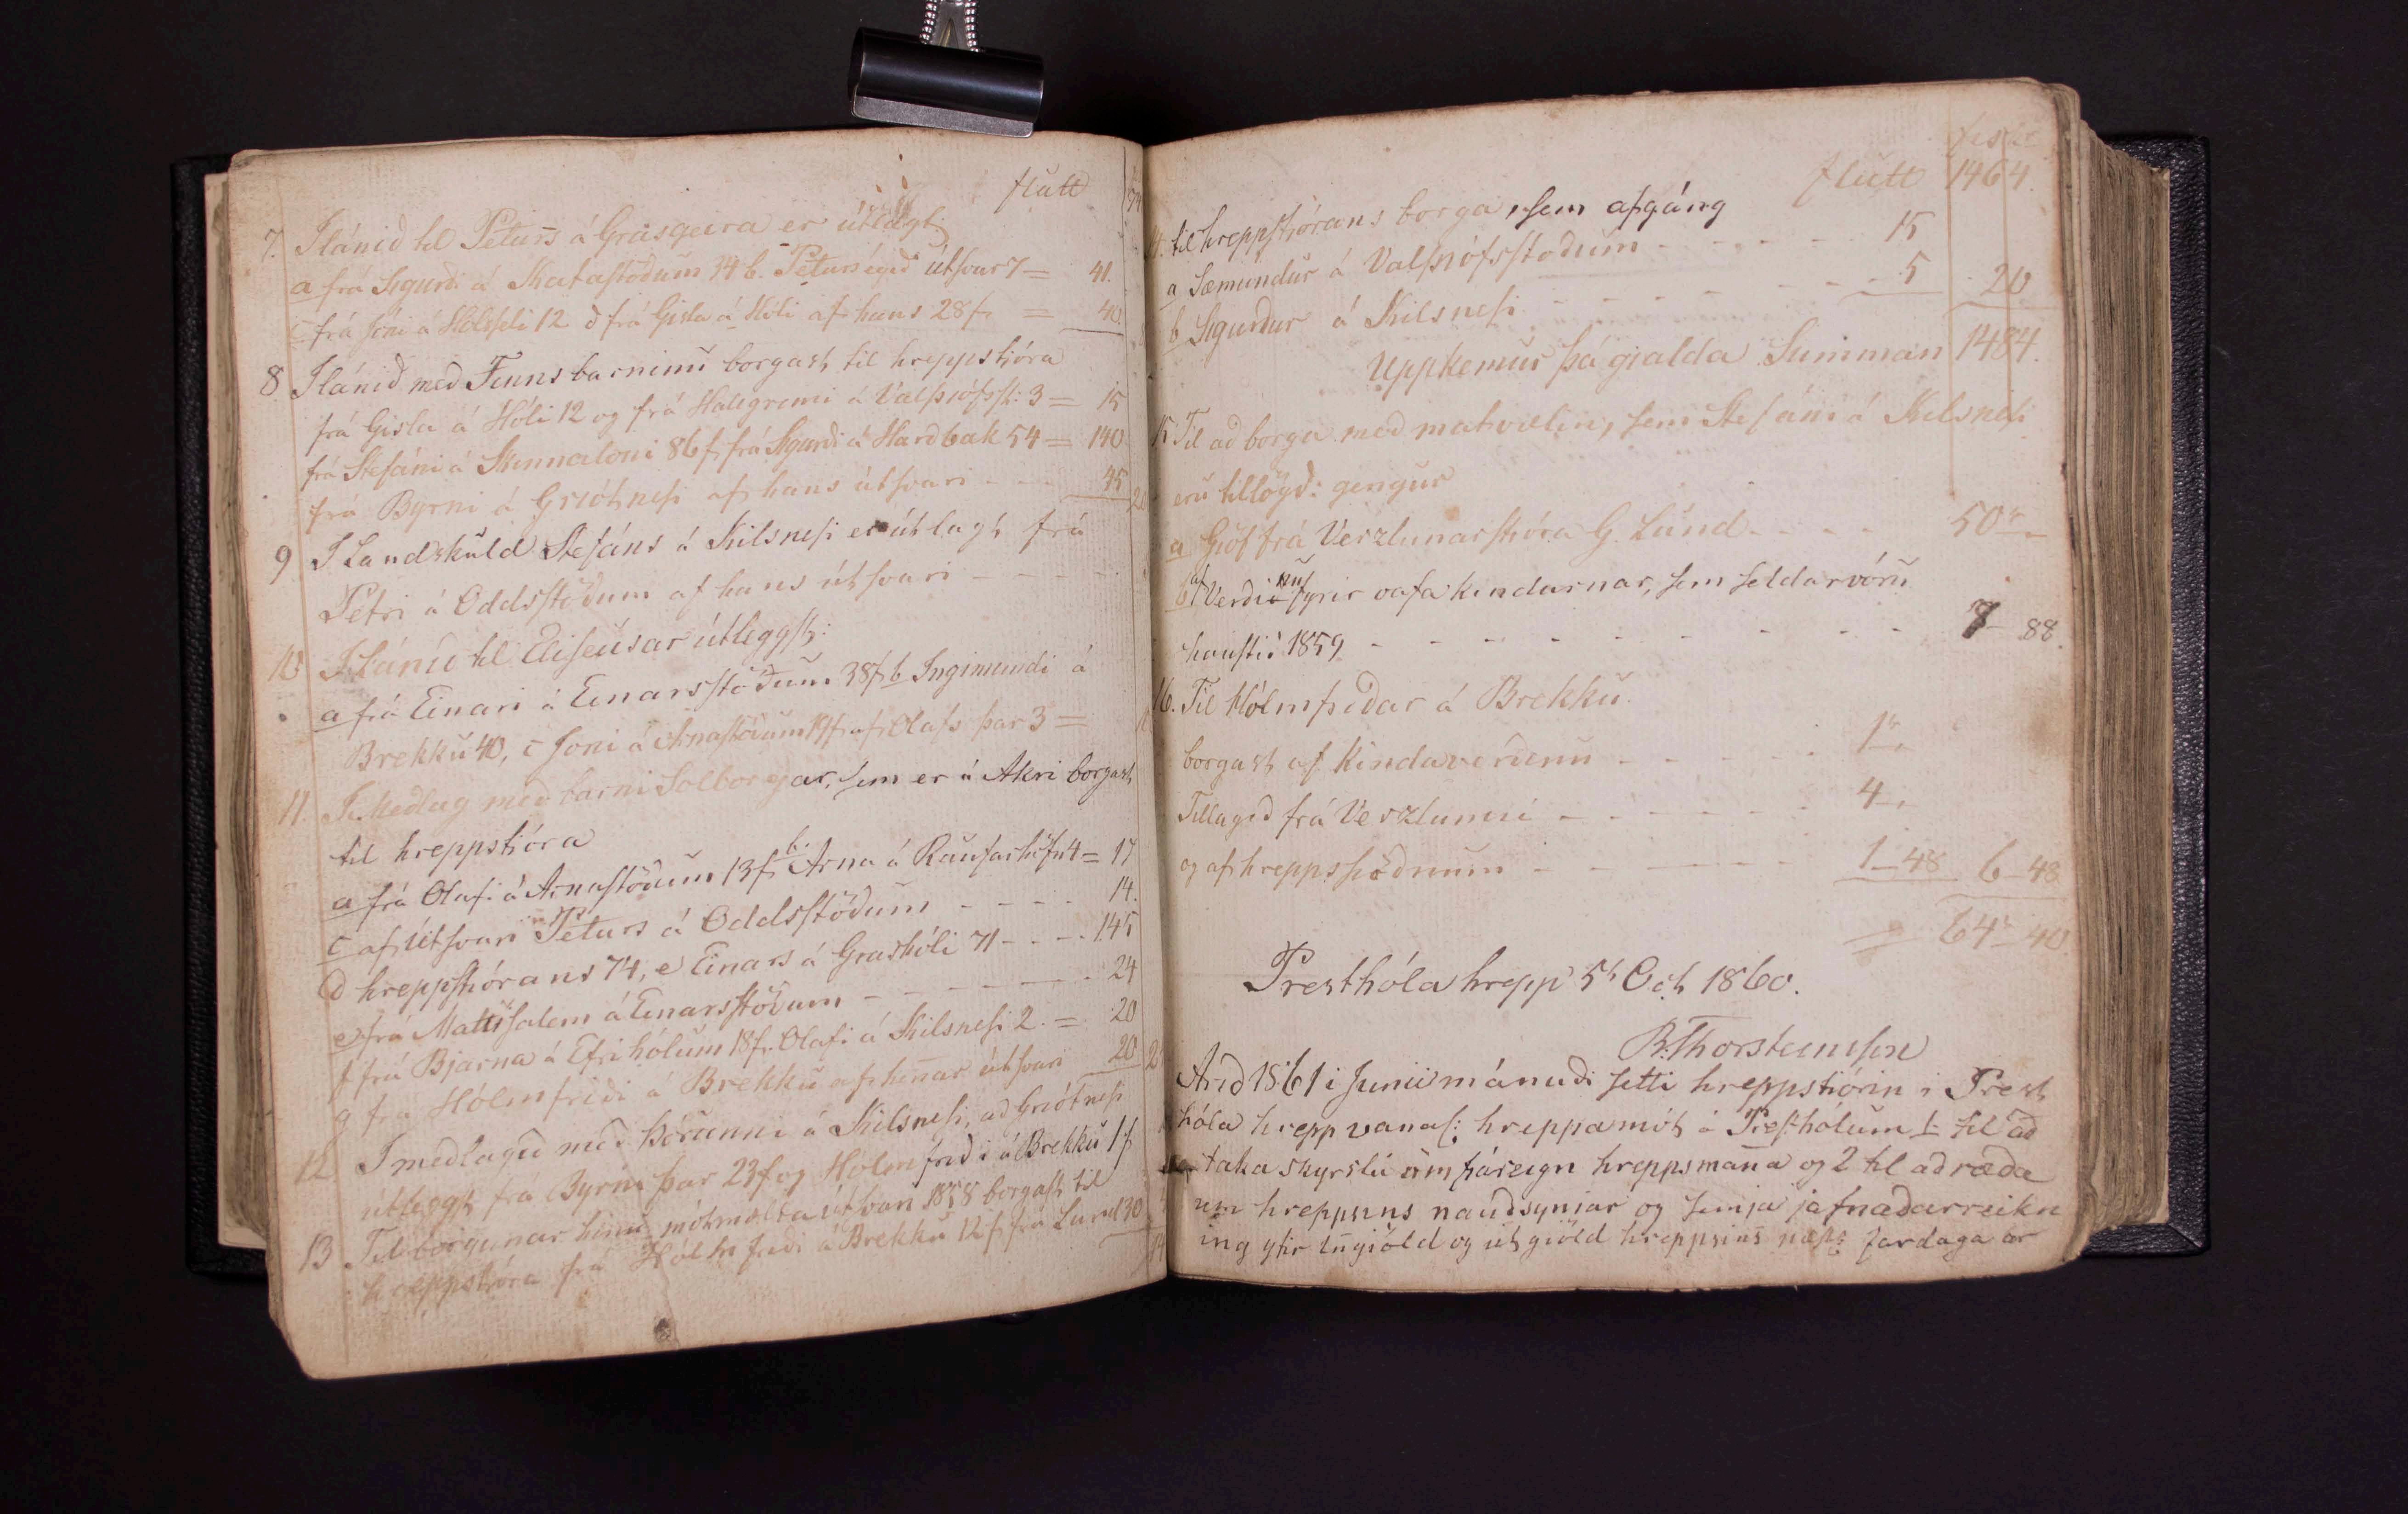 flutt
7. Ilánið til Péturs á Grasgeira er útlagt:
a frá Sigurði á Skatastöðum 14 b. Péturs eigið útsvar 7 = 41.
c frá Jóni á Hólsseli 12 d frá Gísla á Hóli af hans 28 f = 40
8 Ilánið með Finns barninu borgast til hreppstjóra
frá Gisla á Hóli 12 og frá Halegrimi á Valþiófsst: 3 = 15
frá Stefáni á Skinnalóni 86 f frá Sigurði á Harðbak 54 = 140
frá Byrni á Griótnesi af hans útsvari - - 45
9 I Landskuld Stefáns á Kilsnesi er útlagt frá
Petri á Oddsstöðum af hans útsvari - - - -
10 I Lánið til Eliseusar útleggst:
a frá Einari á Einarsstöðum 38 f b Ingimundi á
Brekku 40, c Joni á Arnastöðum 19 f af Olafs þar 3 =
11. I Meðlag með barni Solborgar, sem er á Akri borgast
til hreppstióra
a frá Olafi á Arnastöðum 13 f b. Arna á Raufarhöfn 4 = 17
c af útsvari Péturs á Oddsstöðum - - - - 14.
d hreppstiórans 74, e Einars á Grashóli 71 - - - 145
e frá Matusalem á Einarsstöðum - - - - - - 24
f frá Bjarna á Efrihólum 18 f. Olafi á Kilsnesi 2. = 20
g frá Hólmfriði á Brekku af hennar útsvari 20
12 I meðlagið með Þórunni á Kilsnesi, að Griótnesi
útlegst frá Byrni þar 23 f og Hólmfriði á Brekku 1 f
13 Til borgunar hinu mótmælta útsvari 1858 borgast til
hreppstióra frá Hólmfriði á Brekku 12 f frá Lund 130
flutt 1464.
14. til hreppstiórans borga, sem afgáng
a Sæmundur á Valþiófsstoðum - - - - 15
b Sigurður á Kilsnesi - - - - - - 5 20
Uppkemur þá gialda Summan 1484.
15. Til að borga með matvælin, sem Stefáni á Kilsnesi
eru tillögð: gengur
a Giöf frá Verzlunarstióra G. Lund - - - - 50 r -
b af Verðinu fyrir vafakindarnar, sem seldar vóru
haustið 1859 - - - - - - - - - 7 - 88.
16. Til Hólmfriðar á Brekku.
borgast af Kindaverðinu - - - - - 1 r
Tillagið frá Verzluninni - - - - - - 4 -
og af hreppssióðnum - - - - - 1 - 48 6 - 48
= 64 r 40
Presthóla hrepp 5t Oct 1860.
B: Thorsteinsson
Arið 1861 i Junii mánuði setti hreppstiórin i Prest
hóla hrepp vanal: hreppamót á Presthólum 1: til að
taka skyrslu um fiáreign hreppsmanna og 2 til að ræða
um hreppsins nauðsyniar og semja jafnaðarreikn
ing yfir inngiöld og útgiöld hreppsins næst: fardaga ár